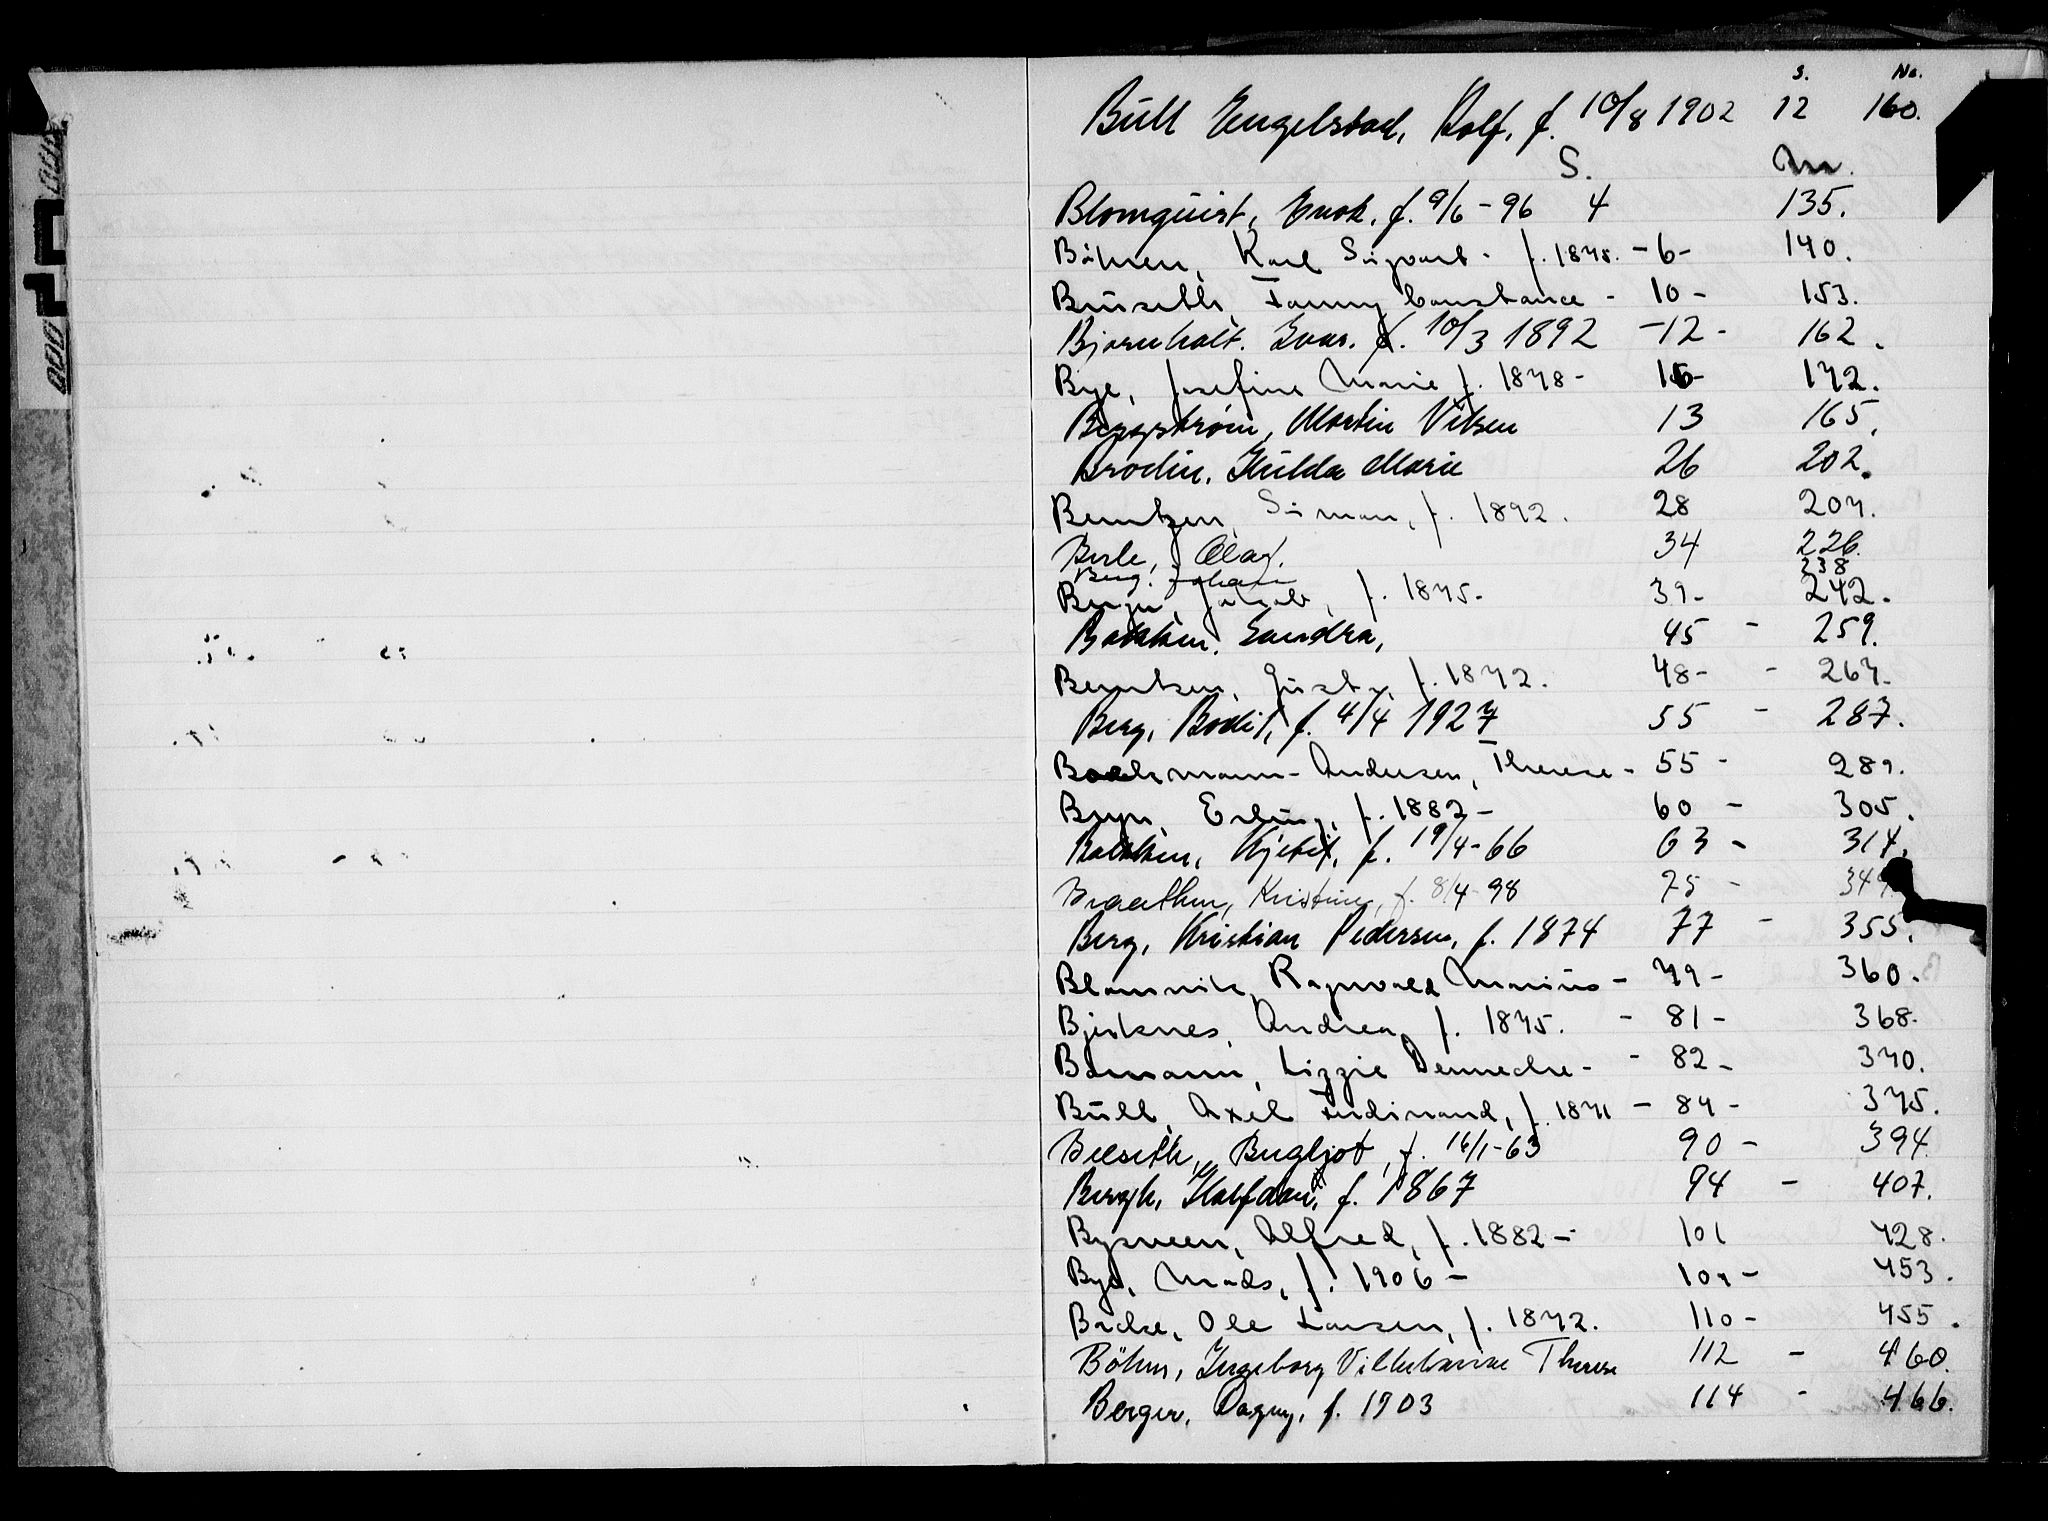 S. No.
Bull Engelstad, Rolf, f. 10/8 1902 12 160.
S. Nr.
Blomquist, Enok. f. 9/6 - 96 4 135.
Karl Sigvart - f. 1875. - 6 - 140.
Bruseth, Fanny Constance - 10 - 153.
Bjørnholt. Ivar. f. 10/3 1892 - 12 - 162.
Bye, Josefine Marie f. 1878 - 16 - 172.
Bergstrøm, Martin Vilsen 13 165.
Brodin. Hulda Marie 26 202.
Berntzen, Simon, f. 1892. 28 207.
Berle, Olaf. 34 226.
Berg. Johan 238
Jakob, f. 1875. 39 - 242.
Bakken. Sandra, 45 - 259.
Berntsen, Gusta, f. 1872. 48 - - 267.
Berg, Bodil, f. 4/4 1927 55 - 287.
Andersen, Therese - 55 - 289.
Bryn, Erling, f. 1882 - 60 - 305.
Bakken, Kjetil, f. 19/4 - 66 63 - 314.
Braathen, Kristine, f. 8/4 - 98 75 - 349
Berg, Kristian Pedersen, f. 1874 77 - 355.
Blomvik, Ragnvald Marius - 79 - 360.
Bjerknes, Andrea, f. 1875. - 81 - 368.
Bomann, Lizzie Dennecke - - 82 - 370.
Bull, Axel Ferdinand, f. 1871 - 84 - 375.
Bergljot, f. 16/1 - 63 90 - 394
Bergh, Halfdan, f. 1867 94 - 407.
Bysveen, Alfred, f. 1882 - 101 428.
Bye, Mads, f. 1906 - 109 - 453.
Bakke, Ole Larsen, f. 1872. 110 - 455.
Böhm, Ingeborg Vilhelmine Therese 112 - 460.
Berger, Dagny, f. 1903 114 - 466.